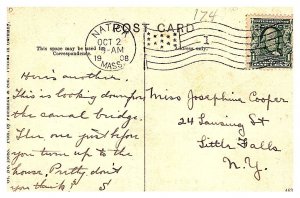 174
POST CARD
NATICK
OCT 2
-AM
1908
MASS.
1
This space may be used for
Correspondence.
Here's another.
This is looking down fr
the canal bridge.
The one just before
you turn up to the
house. Pretty, don't
you think?
Miss Josephine Cooper
24 Lansing St
Little Falls
N.Y.